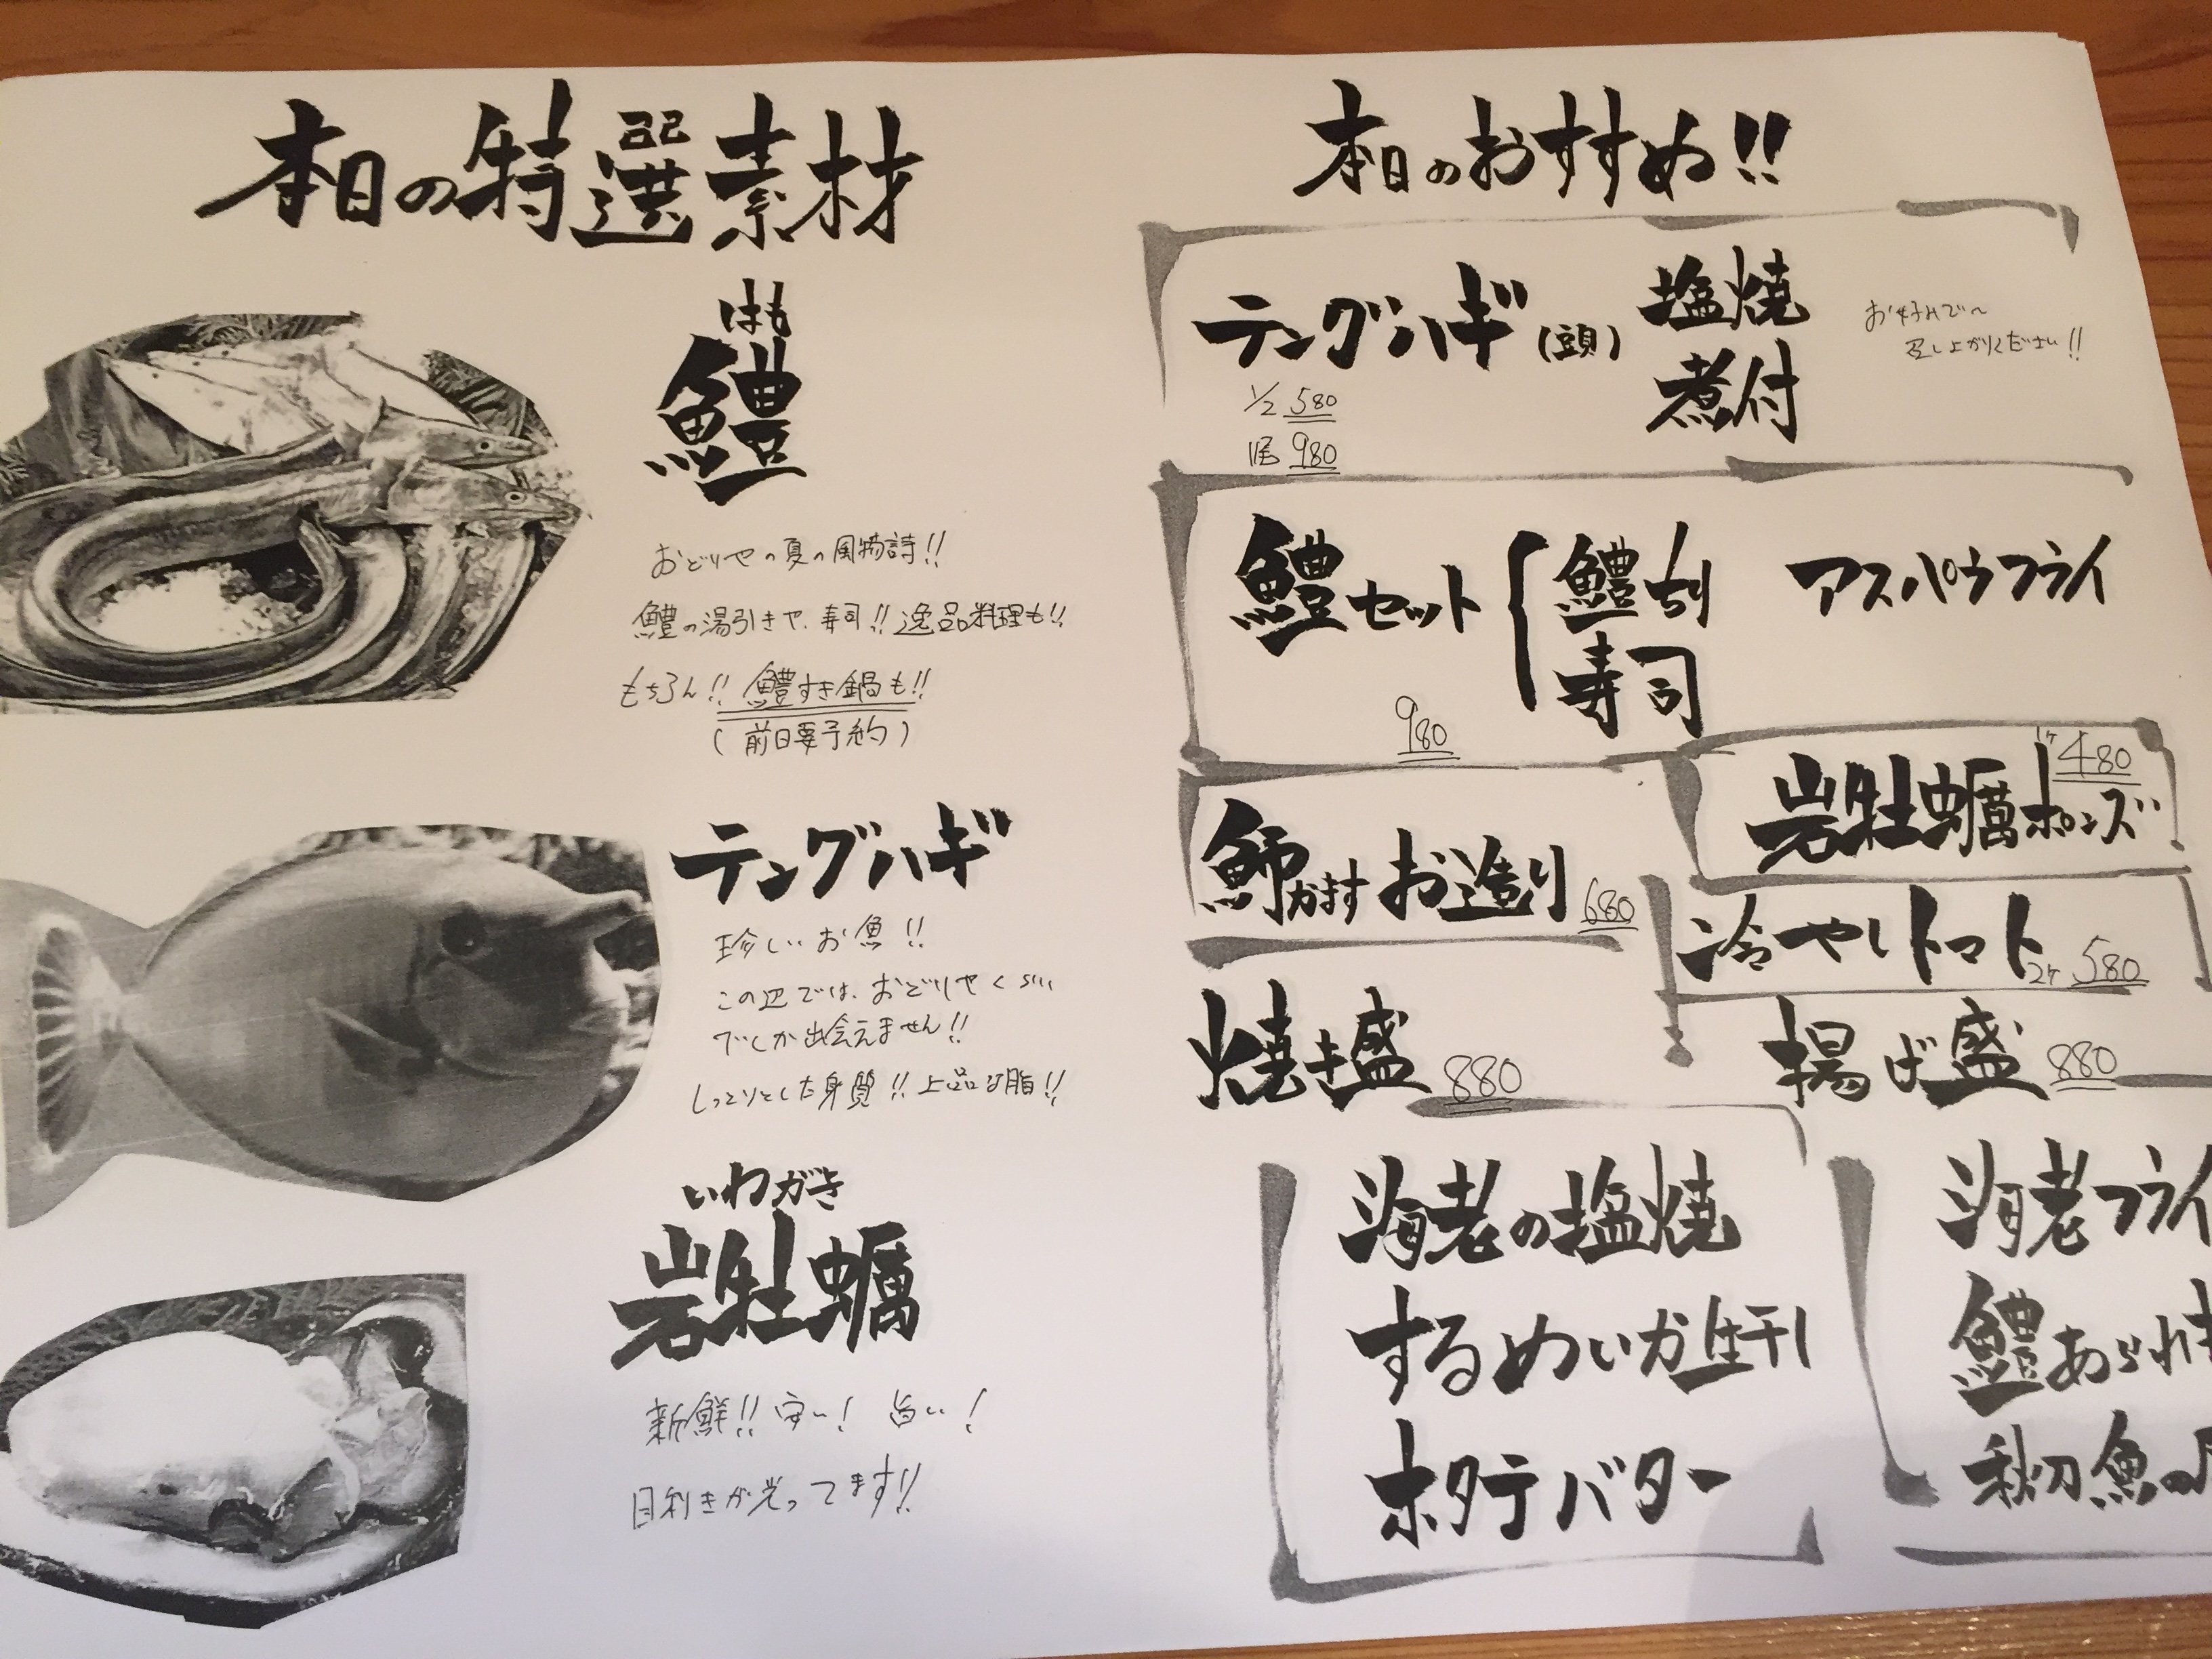 本日の特選素材
はも
鱧
おどりやの夏の風物詩!!
鱧の湯引きや、寿司!!逸品料理も!!
もちろん!!鱧すき鍋も!!
(前日要予約)
テングハギ
珍しいお魚!!
この辺では、おどりやくらい
でしか出会えません!!
しっとりとした身質!!上品な脂!!
いわがき
岩牡蠣
新鮮!!安い!旨い!
目利きが光ってます!!
本日のおすすめ!!
テングハギ(頭)
塩焼
煮付
お好みで〜
召し上がりください!!
1/2 580
1尾 980
鱧セット
鱧ちり
寿司
980
アスパラフライ
魳かますお造り 680
岩牡蠣ポンズ
1ケ 480
冷やしトマト 2ケ 580
焼き盛 880
海老の塩焼
するめいか生干し
ホタテバター
揚げ盛 880
海老フライ
鱧あられ
秋刀魚の